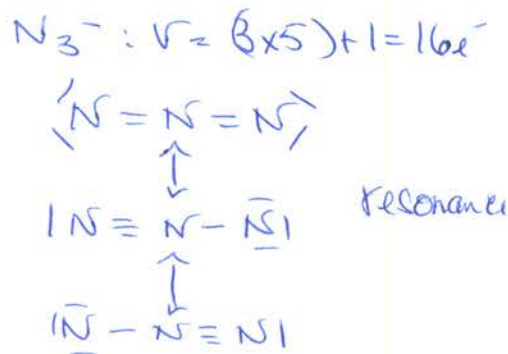 N₃⁻ : V = (3x5)+1 = 16e⁻
⟨N = N = N⟩
↕
|N ≡ N - N̲̅|
resonance
↕
|N̲̅ - N ≡ N|